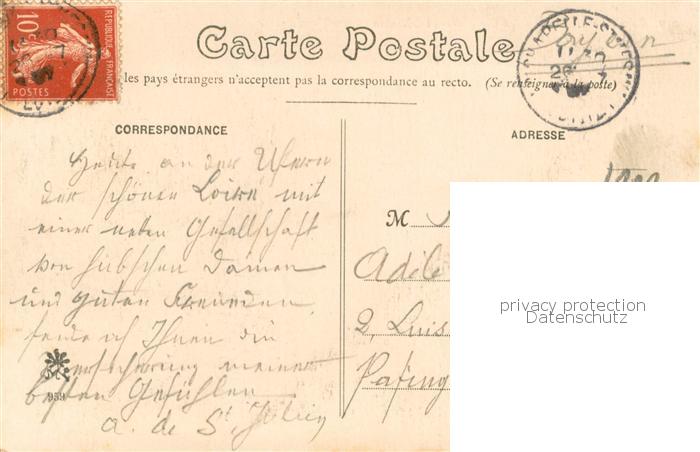 10c
POSTES
REPUBLIQUE
FRANÇAISE
Carte Postale
les pays étrangers n'acceptent pas la correspondance au recto. (Se renseigner à la poste)
CORRESPONDANCE
ADRESSE
Heute an den Ufern
der schönen Loire mit
einer netten Gesellschaft
von hübschen Damen
und guten Freunden,
sende ich Ihnen die
meiner
besten Gefühlen
a. de St.
M
Adèle
2, Luis
Pasing
959
privacy protection
Datenschutz